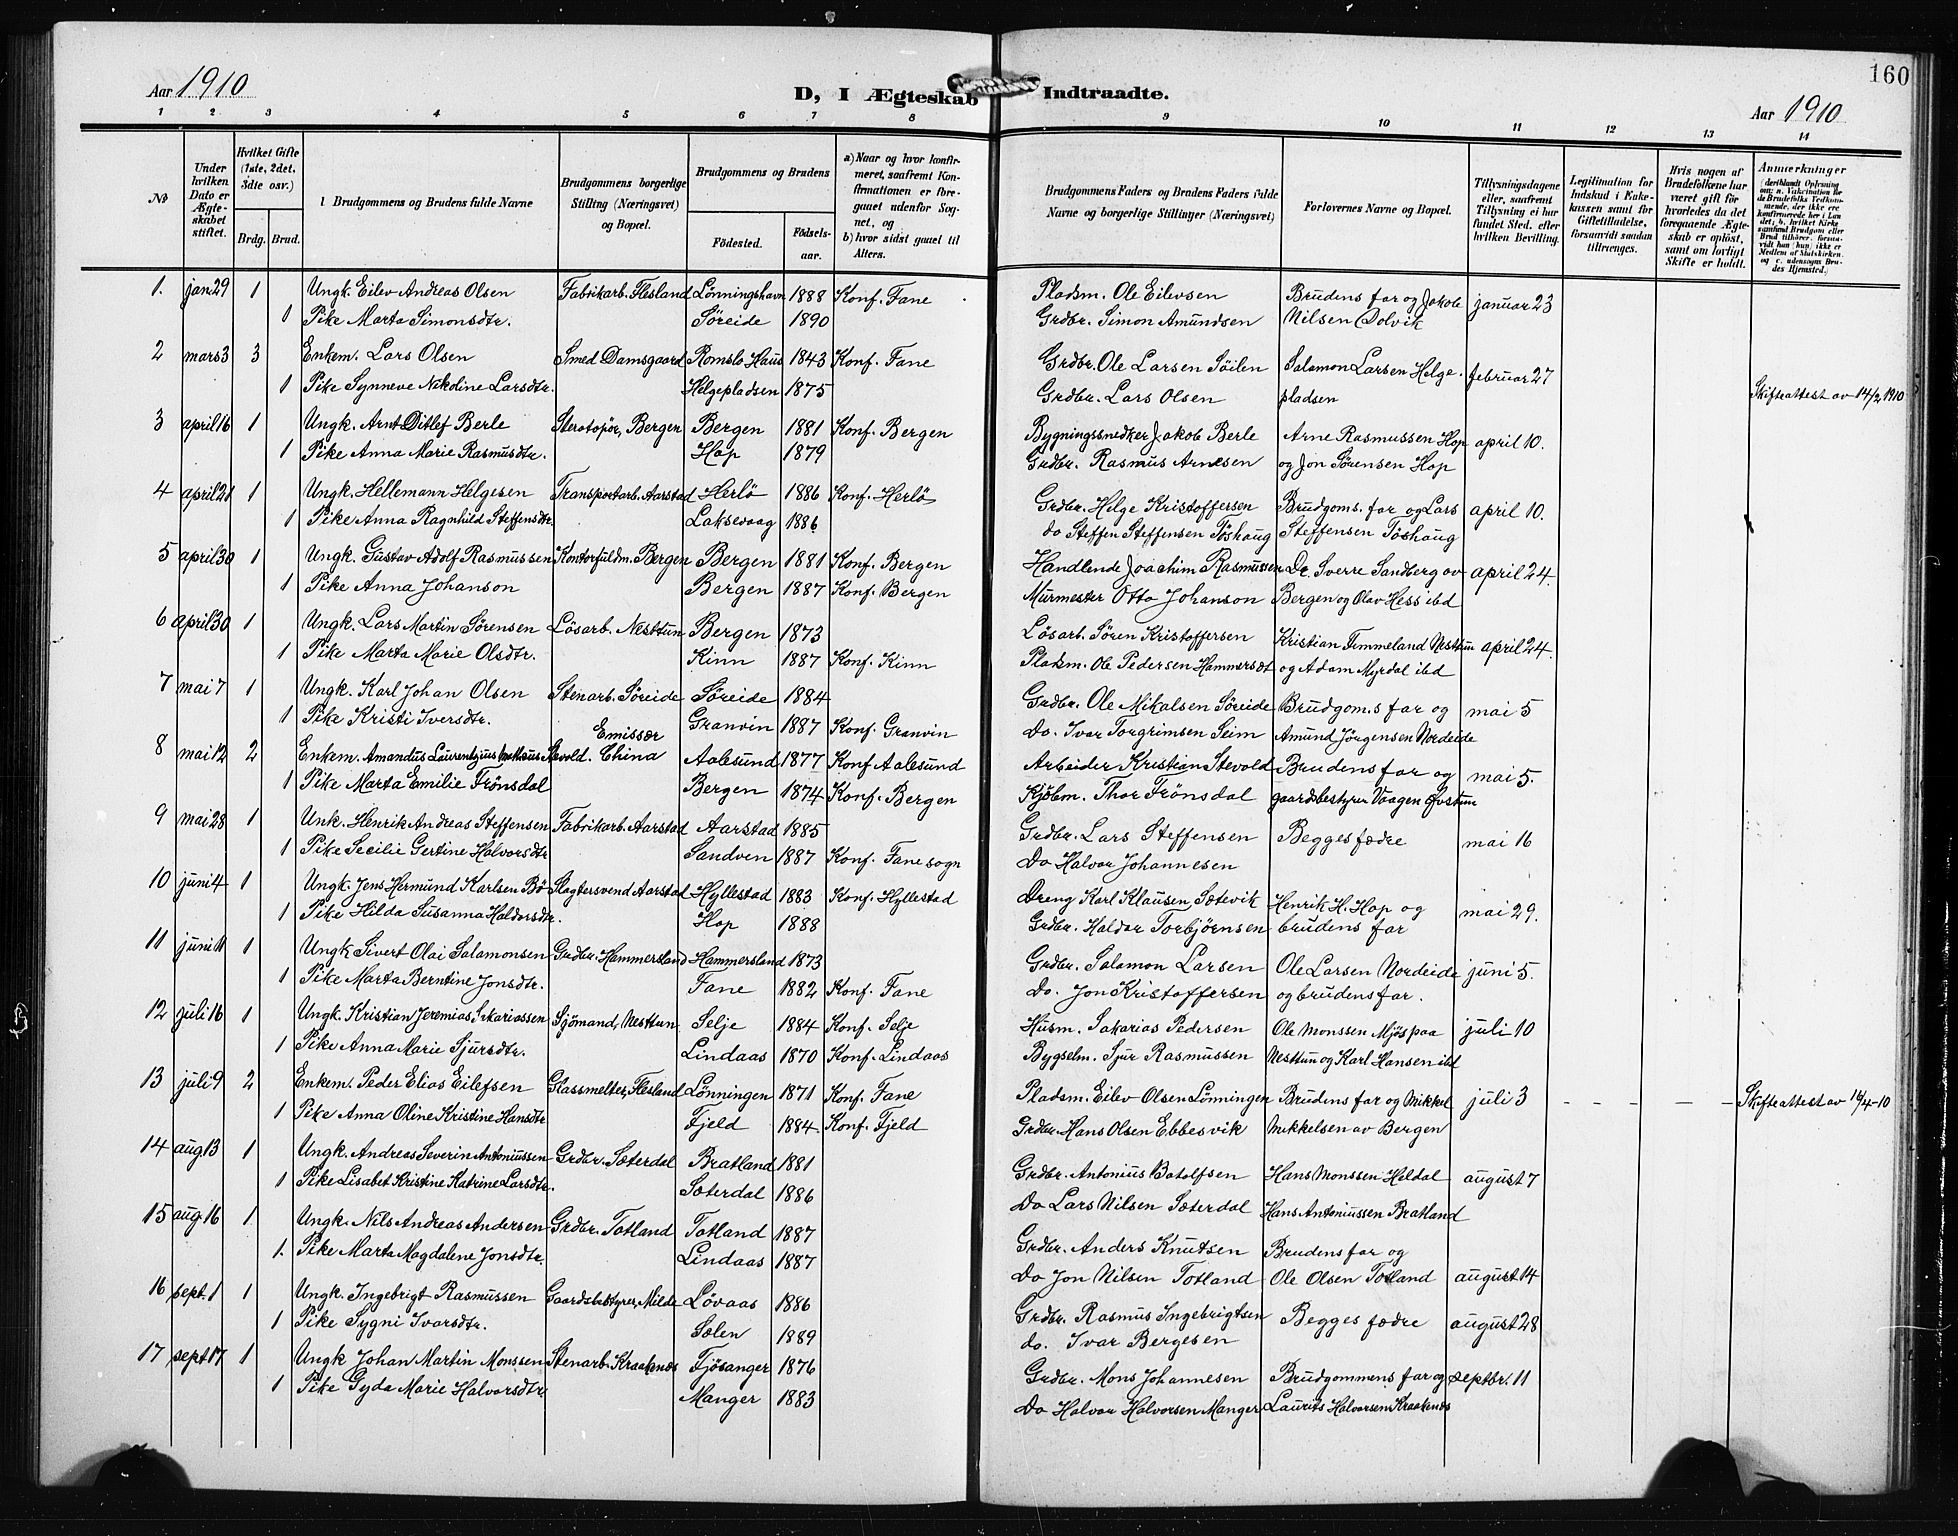 160
Aar 1910
D, I Ægteskab Indtraadte.
Aar 1910
1 2 3 4 5 6 7 8 9 10 11 12 13 14
№
Under hvilken Dato er Ægteskabet stiftet.
Hvilket Gifte (1ste, 2det, 3dte osv.)
Brdg. Brud.
Brudgommens og Brudens fulde Navne
Brudgommens borgerlige Stilling (Næringsvei) og Bopæl.
Brudgommens og Brudens
Fødested.
Fødselsaar.
a) Naar og hvor konfirmeret, saafremt Konfirmationen er foregaaet udenfor Sognet, og
b) hvor sidst gaaet til Alters.
Brudgommens Faders og Brudens Faders fulde Navne og borgerlige Stillinger (Næringsvei)
Forlovernes Navne og Bopæl.
Tillysningsdagene eller, saafremt Tillysning ei har fundet Sted, efter hvilken Bevilling.
Legitimation for Indskud i Enkekassen samt for Giftetilladelse, forsaavidt saadan tiltrænges.
Hvis nogen af Brudefolkene har været gift før hvorledes da det foregaaende Ægteskab er opløst, samt om lovligt Skifte er holdt.
Anmerkninger
1. jan 29 1 Ungk. Eilev Andreas Olsen Fabrikarb. Flesland Lønningshavn 1888 Konf. Fane Pladsm. Ole Eilevsen Brudens far og Jakob januar 23
1 Pike Marta Simonsdtr. Søreide 1890 Grdbr. Simon Amundsen Nilsen Dolvik
2 mars 3 3 Enkem. Lars Olsen Smed Damsgaard Romslo Haus 1843 Konf. Fane Grdbr. Ole Larsen Söilen Salomon Larsen Helge- februar 27
1 Pike Synneve Nikoline Larsdtr. Helgepladsen 1875 Grdbr. Lars Olsen pladsen Skifteattest av 14/2 1910
3 april 16 1 Ungk. Arnt Ditlef Berle Sterotopör, Bergen Bergen 1881 Konf. Bergen Bygningssnedker Jakob Berle Arne Rasmussen Hop april 10.
1 Pike Anna Marie Rasmusdtr. Hop 1879 Grdbr. Rasmus Arnesen og Jon Sörensen Hop
4 april 21 1 Ungk. Hellemann Helgesen Transportarb. Aarstad Herlö 1886 Konf. Herlö Grdbr. Helge Kristoffersen Brudgoms. far og Lars april 10.
1 Pike Anna Ragnhild Steffensdtr. Laksevaag 1886 do Steffen Steffensen Töshaug Steffensen Töshaug
5 april 30 1 Ungk. Gustav Adolf Rasmussen Kontorfuldm. Bergen Bergen 1881 Konf. Bergen Handlende Joachim Rasmussen Dr. Sverre Sandberg av april 24.
1 Pike Anna Johanson Bergen 1887 Konf. Bergen Murmester Otto Johanson Bergen og Olav Hess ibd
6 april 30 1 Ungk. Lars Martin Sörensen Lösarb. Nesttun Bergen 1873 Lösarb. Sören Kristoffersen Kristian Timmeland Nesttun april 24.
1 Pike Marta Marie Olsdtr. Kinn 1887 Konf. Kinn Pladsm. Ole Pedersen Hammersdt og Adam Myrdal ibd
7 mai 7 1 Ungk. Karl Johan Olsen Stenarb. Söreide Söreide 1884 Grdbr. Ole Mikalsen Söreide Brudgoms far og mai 5
1 Pike Kristi Iversdtr. Granvin 1887 Konf. Granvin Do. Ivar Torgrimsen Seim Amund Jörgensen Nordeide
8 mai 12 2 Enkem. Amandus Laurentzius Stevold. Emissær China Aalesund 1877 Konf Aalesund Arbeider Kristian Stevold Brudens far og mai 5.
1 Pike Marta Emilie Frönsdal Bergen 1874 Konf. Bergen Kjöbm. Thor Frönsdal gaardsbestyrer Vaagen Øvstun
9 mai 28 1 Unk. Henrik Andreas Steffensen Fabrikarb. Aarstad Aarstad 1885 Grdbr. Lars Steffensen Begges fædre mai 16
1 Pike Secilie Gertine Halvorsdtr Sandven 1887 Konf. Fane sogn Do Halvor Johannesen
10 juni 4 1 Ungk. Jens Hermund Karlsen Bö Slagtersvend Aarstad Hyllestad 1883 Konf. Hyllestad Dreng Karl Klausen Sætevik Henrik H. Hop og mai 29.
1 Pike Hilda Susanna Haldorsdtr. Hop 1888 Grdbr. Haldor Torbjörnsen brudens far
11 juni 11 1 Ungk Sivert Olai Salamonsen Grdbr. Hammersland Hammersland 1873 Grdbr. Salamon Larsen Ole Larsen Nordeide juni 5.
1 Pike Marta Berntine Jonsdtr. Fane 1882 Konf. Fane Do. Jon Kristoffersen og brudens far.
12 juli 16 1 Ungk. Kristian Jeremias Sakariassen Sjömand, Nesttun Selje 1884 Konf. Selje Husm. Sakarias Pedersen Ole Monssen Mjös paa juli 10
1 Pike Anna Marie Sjursdtr. Lindaas 1870 Konf. Lindaas Bygselm. Sjur Rasmussen Nesttun og Karl Hansen ibd
13 juli 9 2 Enkem. Peder Elias Eilefsen Glassmelter, Flesland Lønningen 1871 Konf. Fane Pladsm. Eilev Olsen Lönningen Brudens far og Mikkel juli 3 - - - - - Skifteattest av 16/4-10
1 Pike Anna Oline Kristine Hansdtr Fjeld 1884 Konf. Fjeld Grdbr. Hans Olsen Ebbesvik Mikkelsen av Bergen
14 aug 13 1 Ungk. Andreas Severin Antoniussen Grdbr. Sæterdal Bratland 1881 Grdbr. Antonius Botolfsen Hans Monssen Heldal august 7
1 Pike Lisabet Kristine Katrine Larsdtr. Sæterdal 1886 Do Lars Nilsen Sæterdal Hans Antoniussen Bratland
15 aug. 16 1 Ungk. Nils Andreas Andersen Grdbr. Totland Totland 1887 Grdbr. Anders Knutsen Brudens far og
1. Pike Marta Magdalene Jonsdtr. Lindaas 1887 Do Jon Nilsen Totland Ole Olsen Totland august 14
16 sept. 1 1 Ungk. Ingebrigt Rasmussen Gaardsbestyrer, Milde Lövaas 1886 Grdbr. Rasmus Ingebrigtsen Begges fædre august 28
1 Pike Sygni Ivarsdtr. Sælen 1889 do. Ivar Bergesen
17 sept 17 1 Ungk Johan Martin Monssen Stenarb. Kraakenes Fjösanger 1876 Grdbr. Mons Johannesen Brudgommens far og septbr. 11
1 Pike Gyda Marie Halvorsdtr Manger 1883 Do Halvor Halvorsen Manger Laurits Halvorsen Kraakenes